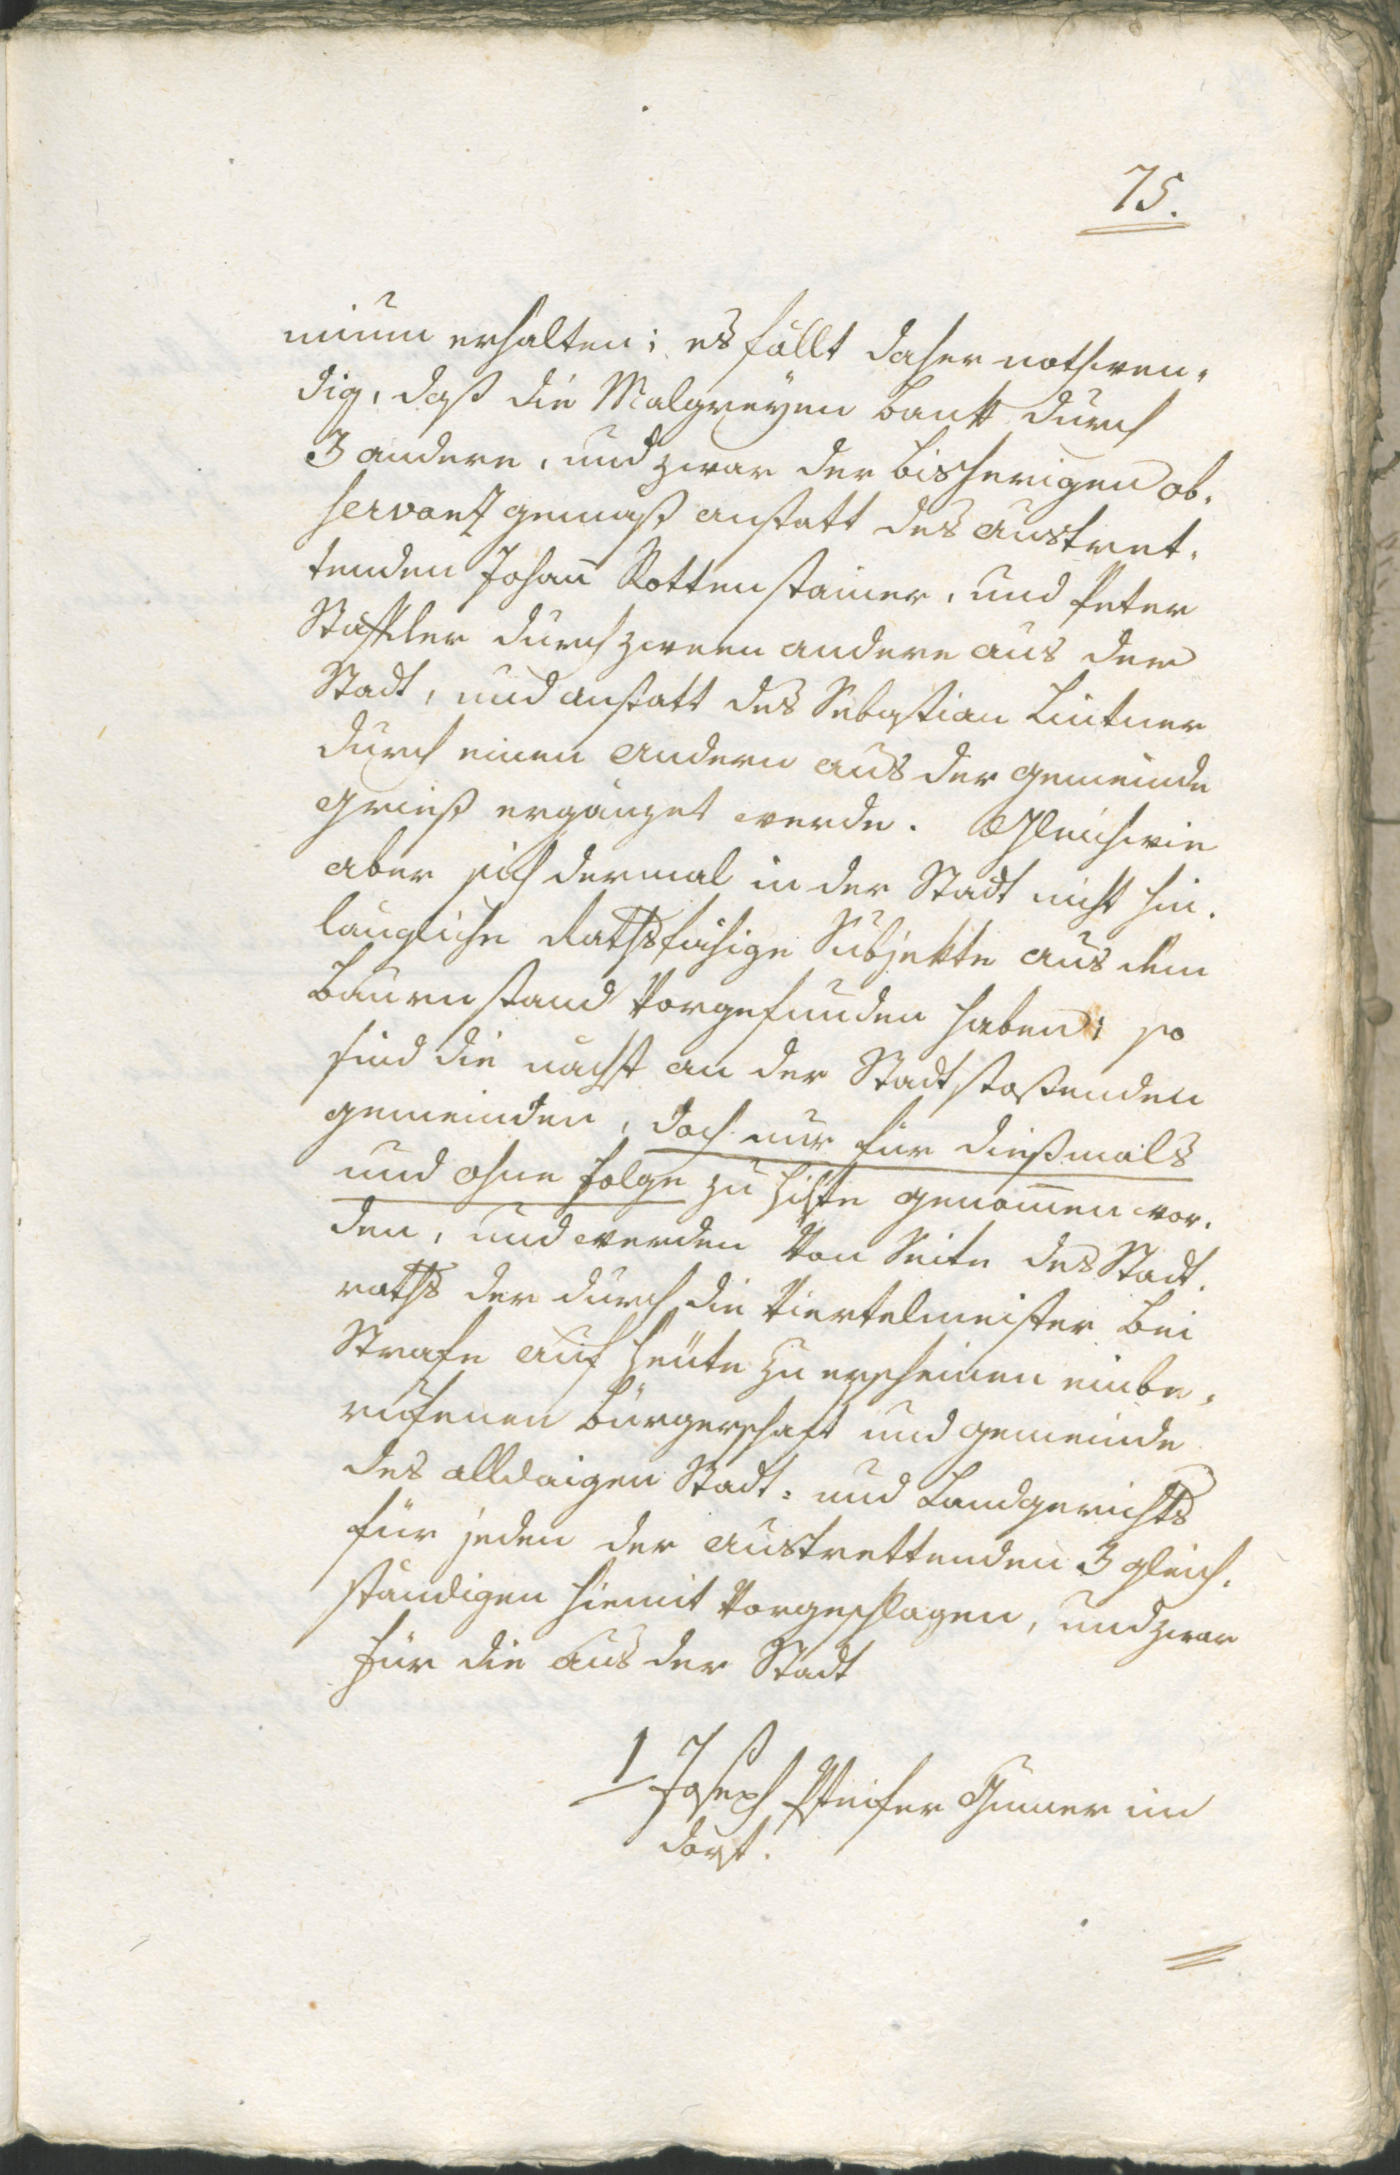 75.
nium erhalten; es fällt daher nothwen„
dig, daß die Malgreyen bank durch
3 andere, und zwar der bisherigen ob„
servanz gemäß anstatt des austret„
tenden Johan̄ Rottensteiner, und Peter
Staffler durch zween andere aus der
Stadt, und anstatt des Sebastian Lintner
durch einen andern aus der Gemeinde
Grieß ergänzet werde. Gleichwie
aber sich dermal in der Stadt nicht hin„
längliche Rathsfähige Subjekte aus dem
Baurnstand vorgefunden haben; so
sind die nächst an der Stadt stoßenden
gemeinden, doch nur für dießmals
und ohne folge zu Hilfe genom̄en wor„
den, und werden von Seite des Stadt„
raths der durch die Viertelmeister bei
Strafe auf heute zu erscheinen einbe„
rufenen bürgerschaft und gemeinde
des alldaigen Stadt- und Landgerichts
für jeden der austrettenden 3 gleich„
ständigen hiemit vorgeschlagen, und zwar
für die aus der Stadt
1 Joseph Pfeifer im
dorf.